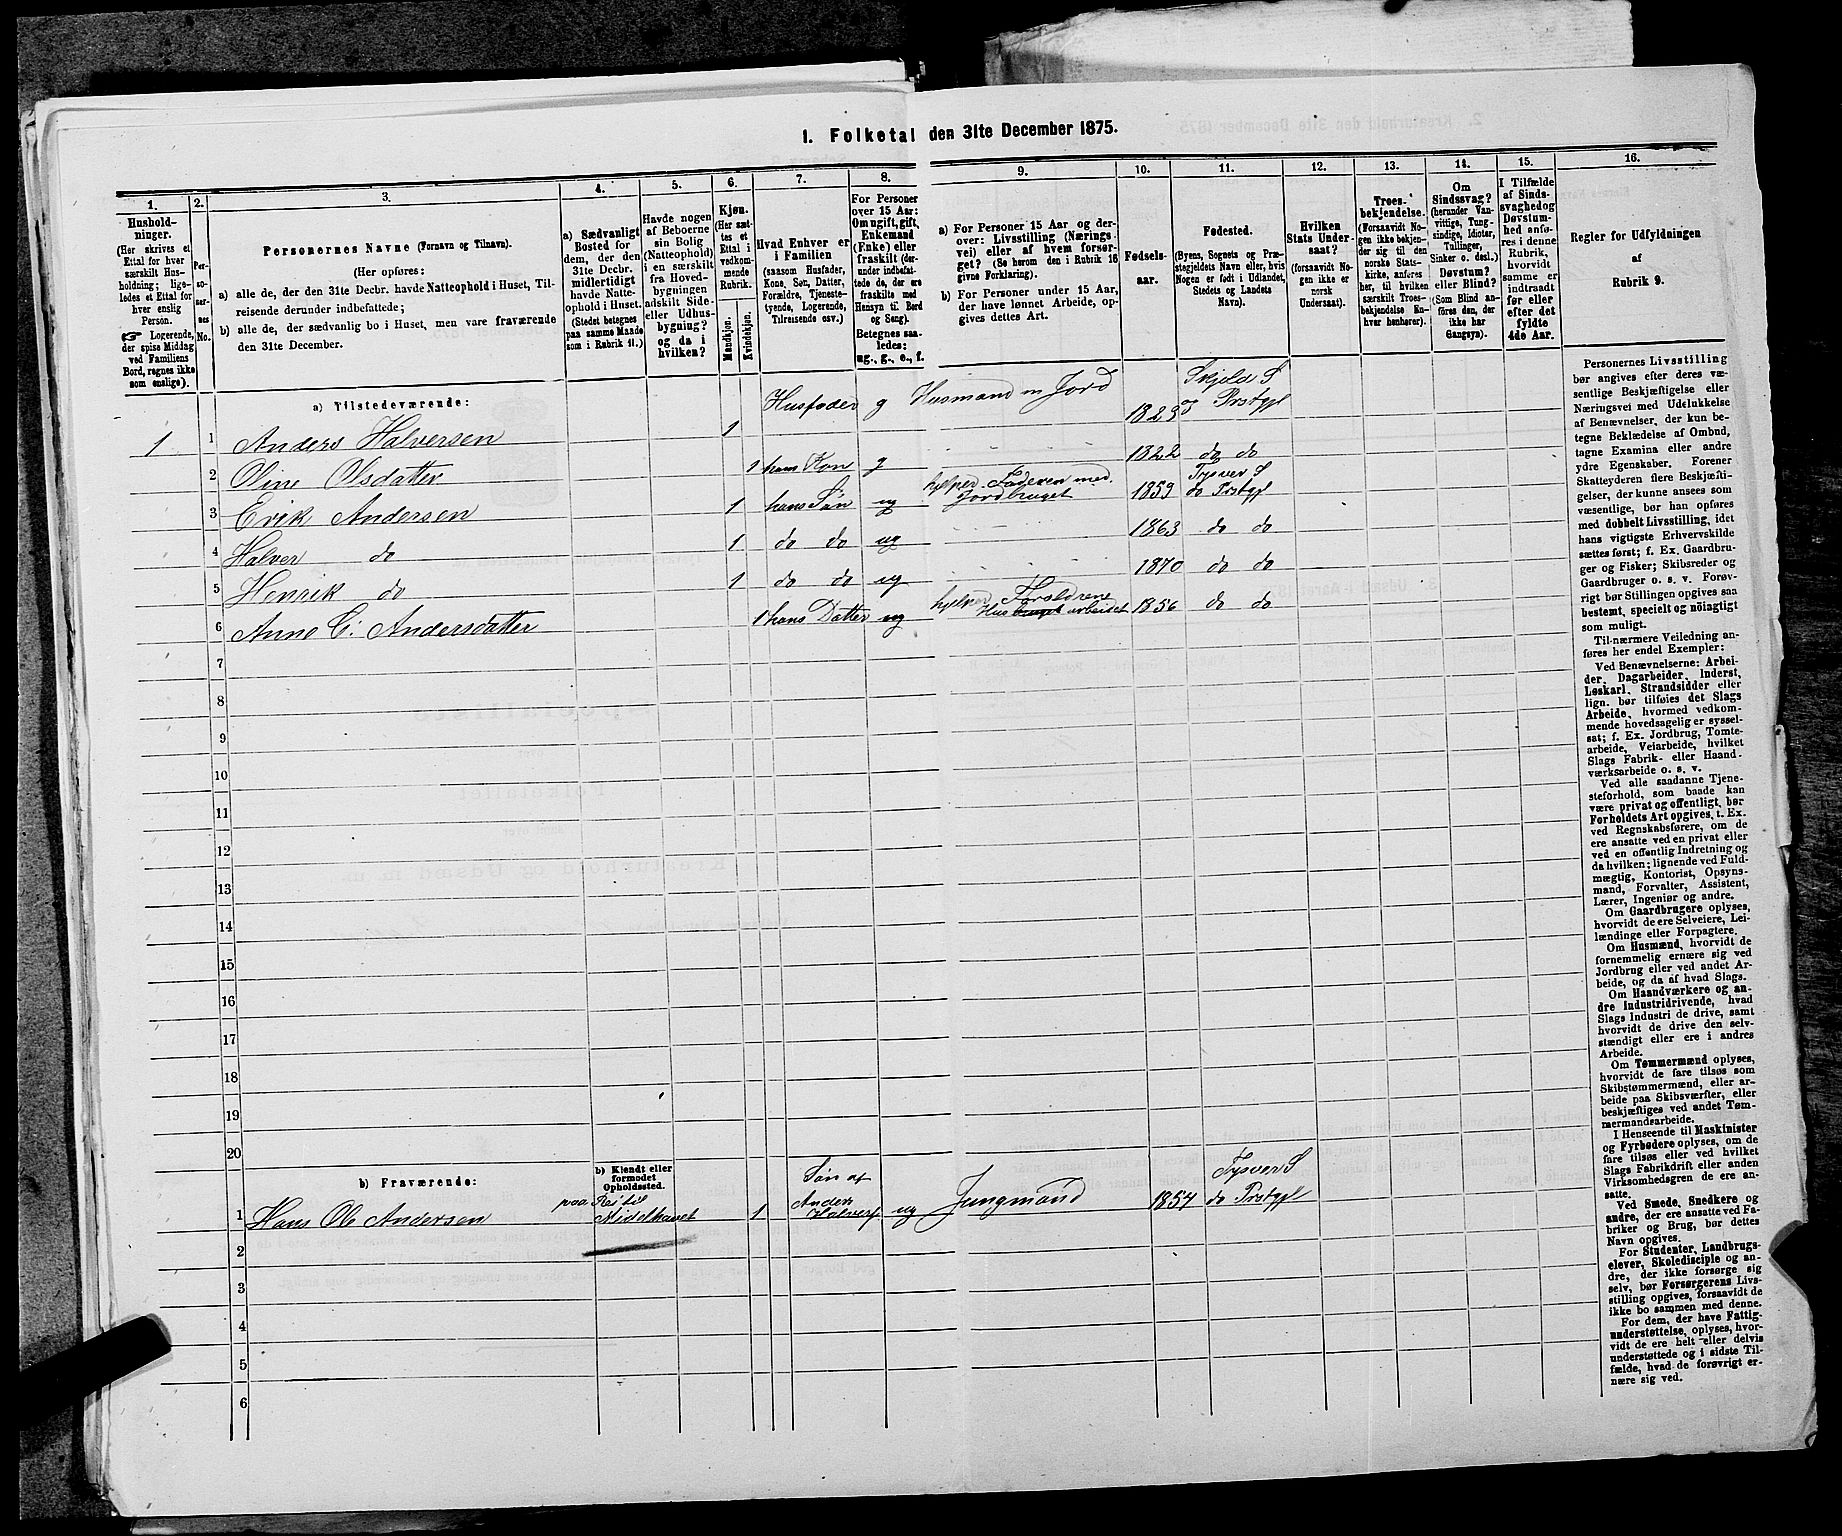 1. Folketal den 31te December 1875.
1.
2.
3.
4.
5.
6.
7.
8.
9.
10.
11.
12.
13.
14.
15.
16.
Hushold-
ninger.
(Her skrives et
Ettal for hver
særskilt Hus-
holdning; lige-
ledes et Ettal for
hver enslig
Person.
Logerende,
der spise Middag
ved Familiens
Bord, regnes ikke
som enslige).
Per-
so-
ner-
nes
No.
Personernes Navne (Fornavn og Tilnavn).
(Her opføres:
a) alle de, der den 31te Decbr. havde Natteophold i Huset, Til-
reisende derunder indbefattede;
b) alle de, der sædvanlig bo i Huset, men vare fraværende
den 31te December.
a) Sædvanligt
Bosted for
dem, der den
31te Decbr.
midlertidigt
havde Natte-
ophold i Huset.
(Stedet betegnes
paa samme Maade
som i Rubrik 11.)
Havde nogen
af Beboerne
sin Bolig
(Natteophold)
i en særskilt
fra Hoved-
bygningen
adskilt Side-
eller Udhus-
bygning?
og da i
hvilken?
Kjøn.
(Her sæt-
tes et
Ettal i
vedkom-
mende
Rubrik.
Mandkjøn.
Kvindekjøn.
Hvad Enhver er
i Familien
(saasom Husfader,
Kone, Søn, Datter,
Forældre, Tjeneste-
tyende, Logerende,
Tilreisende osv.)
For Personer
over 15 Aar:
Om ugift, gift,
Enkemand
(Enke) eller
fraskilt (der-
under indbefat-
tede de, der ere
fraskilte med
Hensyn til Bord
og Seng).
Betegnes saa-
ledes:
ug., g., e., f.
a) For Personer 15 Aar og der-
over: Livsstilling (Nærings-
vei) eller af hvem forsør-
get? (Se herom den i Rubrik 16
givne Forklaring).
b) For Personer under 15 Aar,
der have lønnet Arbeide, op-
gives dettes Art.
Fødsels-
aar.
Fødested.
(Byens, Sognets og Præ-
stegjeldets Navn eller, hvis
Nogen er født i Udlandet,
Stedets og Landets
Navn).
Hvilken
Stats Under-
saat?
(forsaavidt No-
gen ikke er
norsk
Undersaat).
Troes-
bekjendelse.
(Forsaavidt No-
gen ikke bekjen-
der sig til den
norske Stats-
kirke, anføres
her, til hvilken
særskilt Troes-
bekjendelse En-
hver henhører).
Om
Sindssvag?
(herunder Van-
vittige, Tung-
sindige, Idioter,
Tullinger,
Sinker o. desl.)
Døvstum?
eller Blind?
(Som Blind an-
føres den, der
ikke har
Gangsyn).
I Tilfælde
af Sinds-
svaghed og
Døvstum-
hed anfø-
res i denne
Rubrik,
hvorvidt
samme er
indtraadt
før eller
efter det
fyldte
4de Aar.
Regler for Udfyldningen
af
Rubrik 9.
a) Tilstedeværende:
1 1 Anders Halversen 1 Husfader g Husmand m Jord 1823 Skjold S og Prstgjl
2 Oline Olsdatter 1 hans Kone g 1822 do do
3 Erik Andersen 1 hans Søn ug hjelper Faderen med Jordbruget 1859 Tysvær S do Prstgjl
4 Halver do 1 do do ug 1863 do do
5 Henrik do 1 do do ug 1870 do do
6 Anne C: Andersdatter 1 hans Datter ug hjelper Forældrene Hus arbeidet 1856 do do
7
8
9
10
11
12
13
14
15
16
17
18
19
20
b) Fraværende:
b) Kjendt eller
formodet
Opholdssted.
1 Hans Ole Andersen paa Rei til Middelhavet 1 Søn af Anders Halvers ug Jungmand 1854 Tysvær S do Prstgjl
2
3
4
5
6
Personernes Livsstilling
bør angives efter deres væ-
sentlige Beskjæftigelse eller
Næringsvei med Udelukkelse
af Benævnelser, der kun be-
tegne Beklædelse af Ombud,
tagne Examina eller andre
ydre Egenskaber. Forener
Skatteyderen flere Beskjæfti-
gelser, der kunne ansees som
væsentlige, bør han opføres
med dobbelt Livsstilling, idet
hans vigtigste Erhvervskilde
sættes først; f. Ex. Gaardbru-
ger og Fisker; Skibsreder og
Gaardbruger o. s. v. Forøv-
rigt bør Stillingen opgives saa
bestemt, specielt og nøiagtigt
som muligt.
Til nærmere Veiledning an-
føres her endel Exempler:
Ved Benævnelserne: Arbei-
der, Dagarbeider, Inderst,
Løskarl, Strandsidder eller
lign. bør tilføies det Slags
Arbeide, hvormed vedkom-
mende hovedsagelig er syssel-
sat; f. Ex. Jordbrug, Tomte-
arbeide, Veiarbeide, hvilket
Slags Fabrik- eller Haand-
værksarbeide o. s. v.
Ved alle saadanne Tjene-
steforhold, som baade kan
være privat og offentligt, bør
Forholdets Art opgives, t. Ex.
ved Regnskabsførere, om de
ere ansatte ved en privat eller
ved en offentlig Indretning og
da hvilken; lignende ved Fuld-
mægtig, Kontorist, Opsyns-
mand, Forvalter, Assistent,
Lærer, Ingeniør og andre.
Om Gaardbrugere oplyses,
hvorvidt de ere Selveiere, Lei-
lændinge eller Forpagtere.
Om Husmænd, hvorvidt de
fornemmelig ernære sig ved
Jordbrug eller ved andet Ar-
beide, og da af hvad Slags.
Om Haandværkere og an-
dre Industridrivende, hvad
Slags Industri de drive, samt
hvorvidt de drive den selv-
stændigt eller ere i andres
Arbeide.
Om Tømmermænd oplyses,
hvorvidt de fare tilsøs som
Skibstømmermænd, eller ar-
beide paa Skibsværfter, eller
beskjæftiges ved andet Tøm-
mermandsarbeide.
I Henseende til Maskinister
og Fyrbødere oplyses, om de
fare tilsøs eller ved hvilket
Slags Fabrikdrift eller anden
Virksomhedsgren de ere an-
satte.
Ved Smede, Snedkere og
andre, der ere ansatte ved Fa-
briker og Brug, bør dettes
Navn opgives.
For Studenter, Landbrugs-
elever, Skoledisciple og an-
dre, der ikke forsørge sig
selv, bør Forsørgerens Livs-
stilling opgives, forsaavidt de
ikke bo sammen med denne.
For dem, der have Fattig-
understøttelse, oplyses, hvor-
vidt de ere helt eller delvis
understøttede og i sidste Til-
fælde, hvad de forøvrigt er-
nære sig ved.